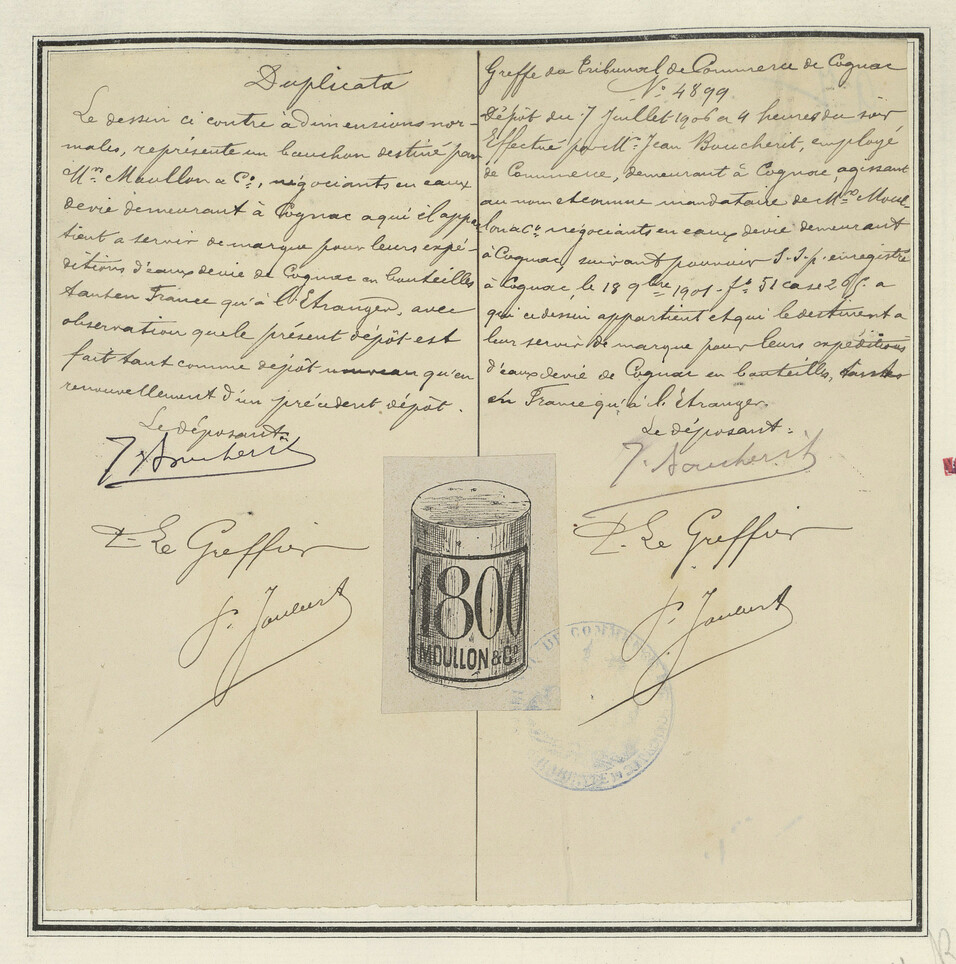 Duplicata
Le dessin ci contre à dimensions nor-
males, représente un bouchon destiné par
Mrs Moullon & Co, négociants en eaux
devie demeurant à Cognac a qui il appar
tient a servir de marque pour leurs expé-
ditions d'eaux devie de Cognac en bouteilles
tant en France qu'à l'Etranger, avec
observation que le présent dépôt est
fait tant comme dépôt nouveau qu'en
renouvellement d'un précédent dépôt.
Le déposant:
J. Boucherit
P. Le Greffier
P. Joubert
Greffe du Tribunal de Commerce de Cognac
No 4899
Dépôt du 7 Juillet 1906 a 4 heures du soir
Effectué par Mr Jean Boucherit, employé
de Commerce, demeurant à Cognac, agissant
au nom et comme mandataire de Mrs Moul
lon & Co négociants en eaux devie demeurant
à Cognac, suivant pouvoir S.S.p. enregistré
à Cognac, le 18 9bre 1901 - fo 51 case 26 a
qui ce dessin appartient et qui le destinent a
leur servir de marque pour leurs expéditions
d'eaux devie de Cognac en bouteilles, tant
en France qu'à l'Etranger.
Le déposant:
J. Boucherit
P. Le Greffier
P. Joubert
1800
MOULLON & Co
DE COMMERCE